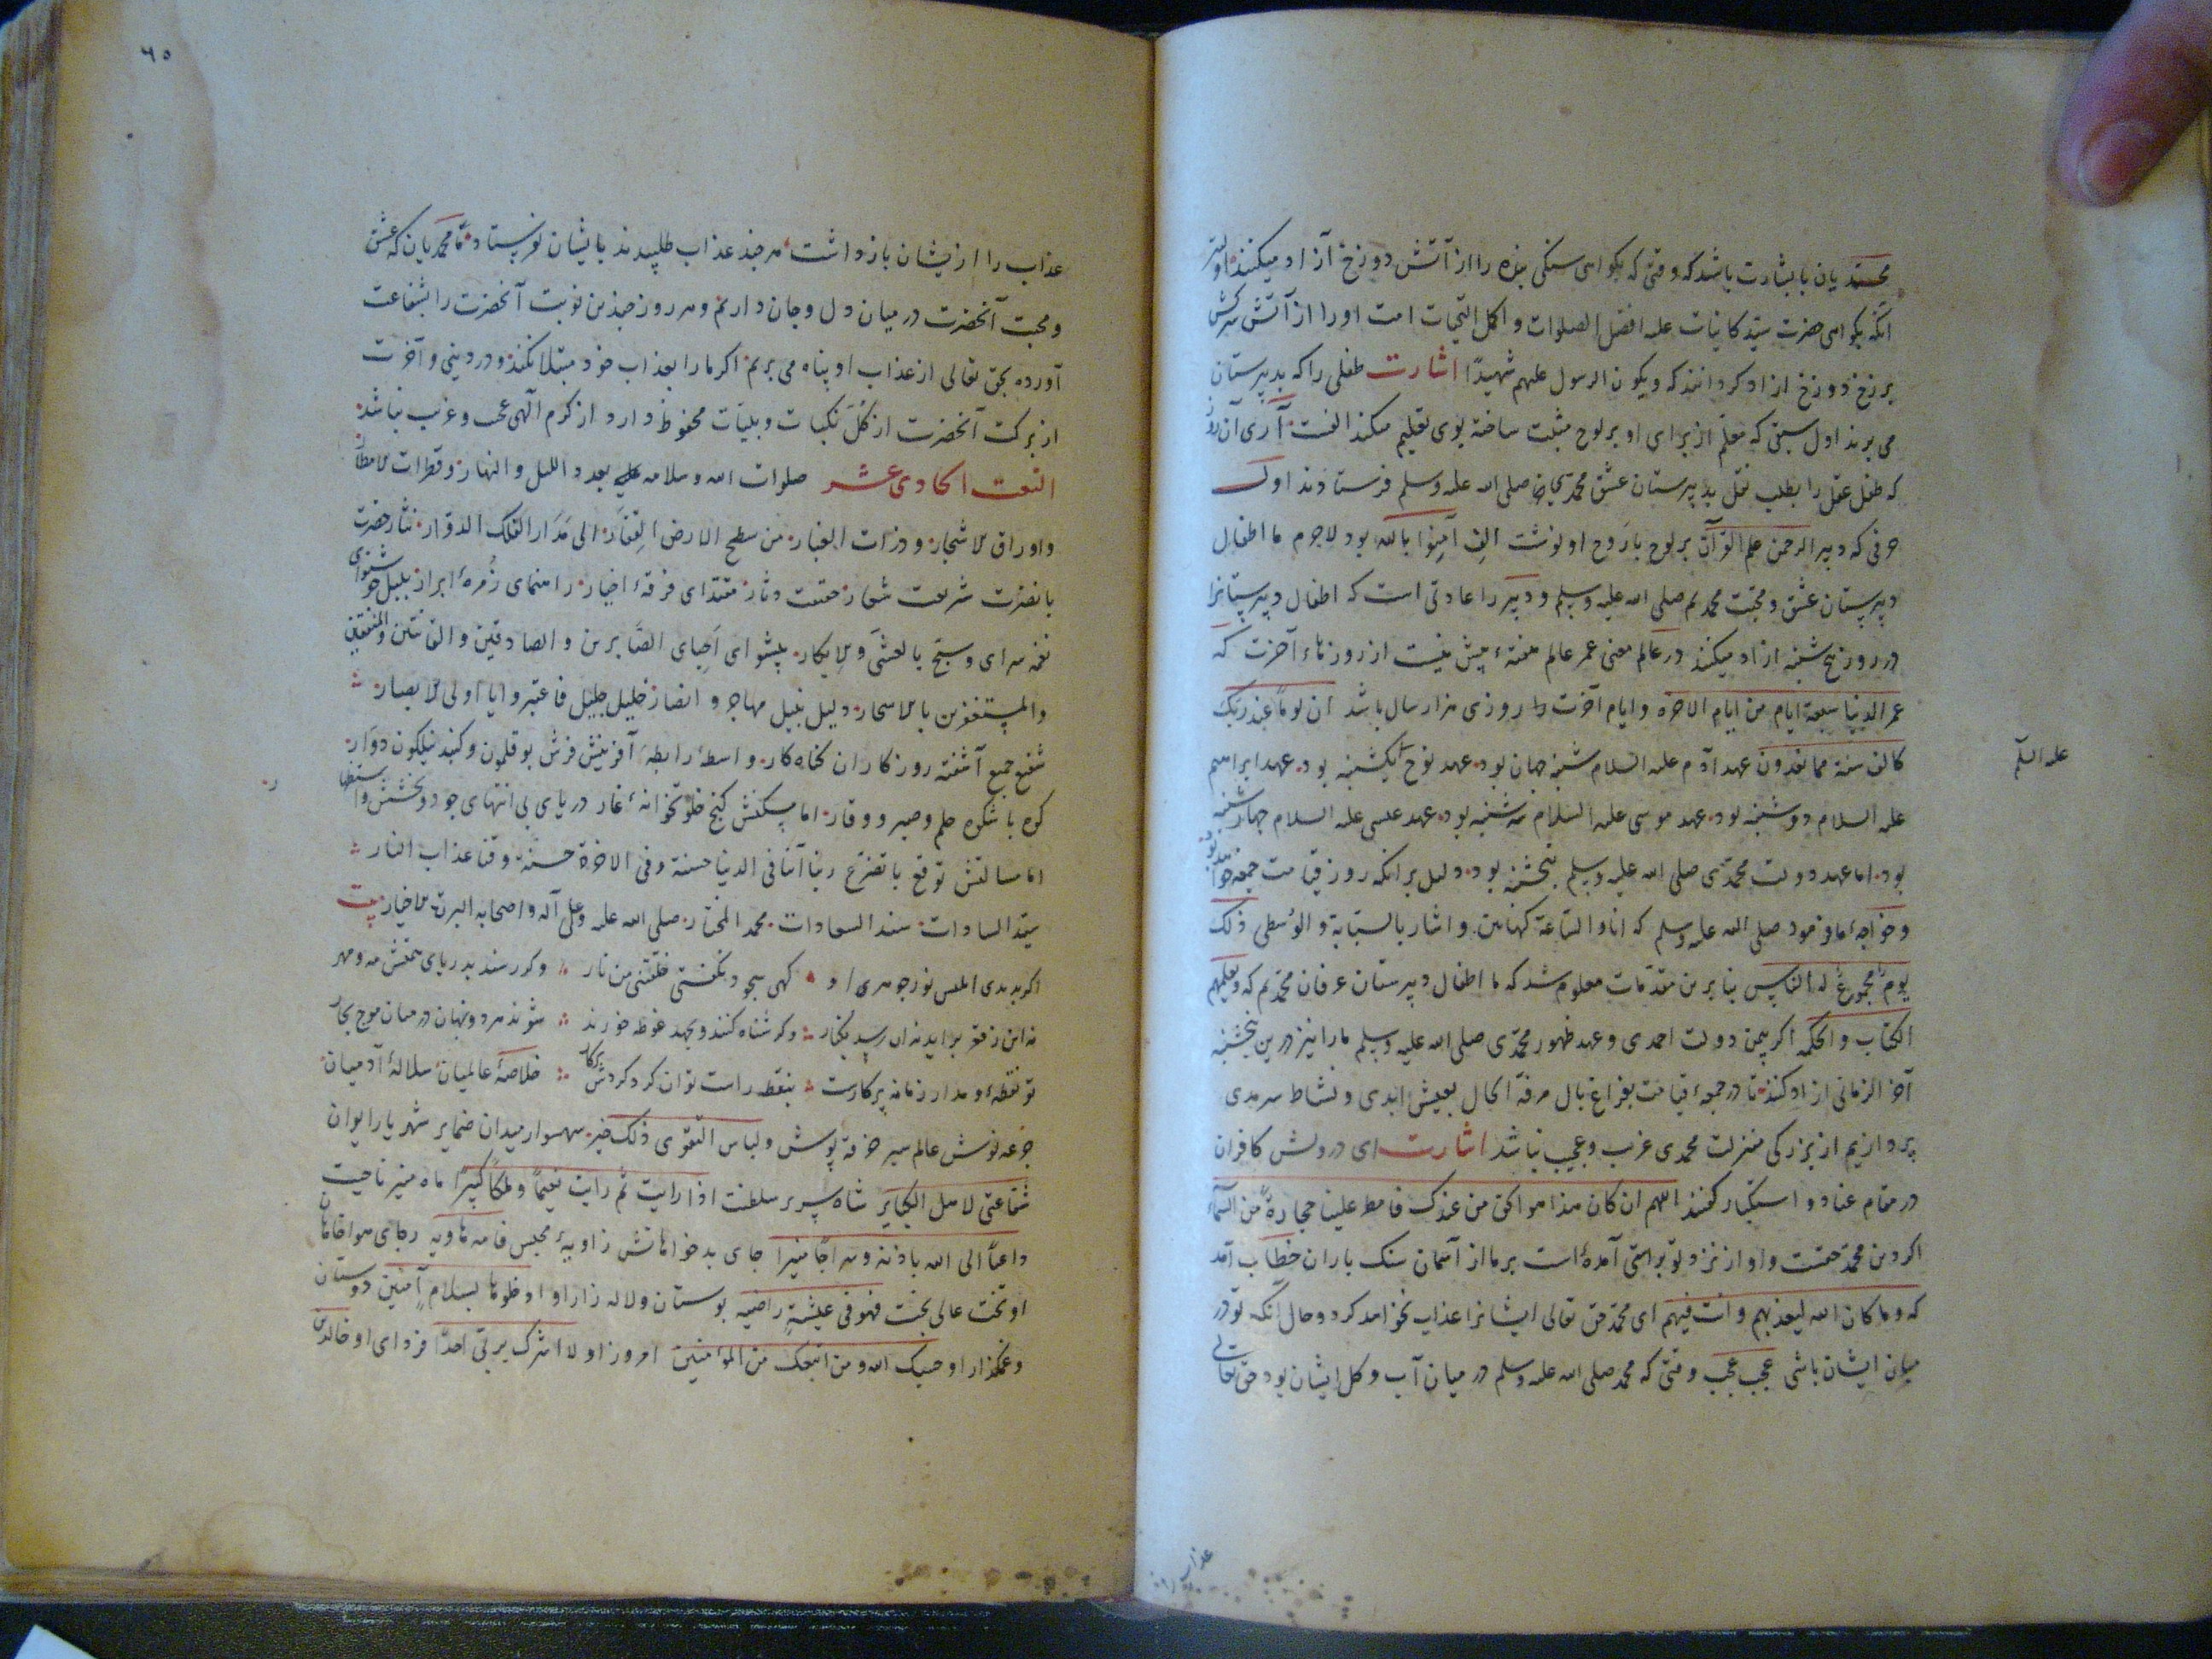 محمدیان با بشارت باشد که وقتی که بکواهی سنکی بنده را از آتش دوزخ آزاد میکنند اولیتر
انکه بکواهی حضرت سید کاینات علیه افضل الصلوات و اکمل التحیات امت او را از آتش سرکش
دوزخ ازاد کردانند که ویکون الرسول علیهم شهیدًا اشارت طفلی را که بدبیرستان
می برند اول سبقی که معلم از برای او بر لوح مثبت ساخته بوی تعلیم میکند الفست آری آن روز
که طفل عقل را بطلب نقل بدبیرستان عشق محمدیان صلی الله علیه وسلم فرستادند اول
حرفی که دبیر الرحمن علم القرآن بر لوح با روح او نوشت الف آمنوا بالله بود لاجرم ما اطفال
دبیرستان عشق و محبت محمدیم صلی الله علیه وسلم و دبیر را عادتی است که اطفال دبیرستانرا
در روز پنج شنبه ازاد میکند در عالم معنی عمر عالم هفتهٔ بیش نیست از روزهاء آخرت که
عمر الدنیا سبعة ایام من ایام الاخرة و ایام آخرت را روزی هزار سال باشد ان یومًا عند ربک
کالف سنة مما تعدون عهد آدم علیه السلام شنبه جهان بود عهد نوح یکشنبه بود عهد ابراهیم
علیه السلام
علیه السلام دوشنبه بود عهد موسی علیه السلام سه شنبه بود عهد عیسی علیه السلام چهارشنبه
بود اما عهد دولت محمدی صلی الله علیه وسلم پنجشنبه بود دلیل بر انکه روز قیامت جمعه خواهد بود
و خواجهٔ ما فرمود صلی الله علیه وسلم که انا والساعة کهاتین و اشار بالسبابة والوسطی ذلک
یوم مجموع له الناس بنا برین مقدمات معلوم شد که ما اطفال دبیرستان عرفان محمدیم که ویعلمهم
الکتاب والحکمة اکر بیمن دولت احمدی و عهد ظهور محمدی صلی الله علیه وسلم ما را نیز درین پنجشنبه
آخر الزمانی ازاد کنند تا در جمعهٔ قیامت بفراغ بال مرفه الحال بعیش ابدی و نشاط سرمدی
پردازیم از بزرکی منزلت محمدی غریب و عجیب نباشد اشارت ای درویش کافران
در مقام عناد و استکبار کفتند اللهم ان کان هذا هو الحق من عندک فامطر علینا حجارة من السماء
اکر دین محمد حقست و او از نزد تو براستی آمده است بر ما از آسمان سنک باران خطاب آمد
که وما کان الله لیعذبهم وانت فیهم ای محمد حق تعالی ایشانرا عذاب نخواهد کرد و حال آنکه تو در
میان ایشان باشی عجب عجب وقتی که محمد صلی الله علیه وسلم در میان آب و کل ایشان بود حق تعالی
عذاب را
٦٥
عذاب را از ایشان باز داشت هر چند عذاب طلبیدند بایشان نفرستاد ما محمدیان که عشق
و محبت آنحضرت در میان دل و جان داریم و هر روز چندین نوبت آنحضرت را بشفاعت
آورده بحق تعالی از عذاب او پناه می بریم اکر ما را بعذاب خود مبتلا نکند و در دینی و آخرت
از برکت آنحضرت از کل نکبات و بلیات محفوظ دارد از کرم الهی عجب و غریب نباشد
النعت الحادی عشر صلوات الله وسلامه علیه بعدد اللیل والنهار وقطرات الامطار
واوراق الاشجار وذرات الغبار من سطح الارض القفار الی مدار الفلک الدوار نثار حضرت
با نضرت شریعت شعار حقیقت دثار مقتدای فرقهٔ اخیار راهنمای زمرهٔ ابرار بلبل خوشنوای
نغمه سرای وسبح بالعشی والابکار پیشوای احبای الصابرین والصادقین والقانتین والمنفقین
والمستغفرین بالاسحار دلیل نبیل مهاجر و انصار خلیل جلیل فاعتبروا یا اولی الابصار
شفیع جمیع آشفته روزکاران کناه کار واسطهٔ رابطهٔ آفرینش فرش بوقلمون و کنبد نیلکون دوار
کوه با شکوه حلم و صبر و وقار اما مسکنش کنج خلوتخانهٔ غار دریای بی انتهای جود و بخشش و استظهار
اما مسالتش توقع با تضرع ربنا آتنا فی الدنیا حسنة وفی الاخرة حسنة وقنا عذاب النار
سید السادات سند السعادات محمد المختار صلی الله علیه وعلی آله واصحابه البررة الاخیار بیت
اکر بدیدی ابلیس نور جوهر او کهی سجود نکفتی خلقتنی من نار وکر رسند بدریای همتش مه و مهر
نه این زقعر براید نه ان رسد بکنار وکر شناه کنند و بجهد غوطه خورند شوند هر دو نهان در میان موج بحار
تو نقطهٔ و مدار زمانه پرکارست بنقطه راست توان کرد کردش پرکار خلاصهٔ عالمیان سلالهٔ آدمیان
جرعه نوش عالم سیر خرقه پوش ولباس التقوی ذلک خیر شهسوار میدان ضمایر شهریار ایوان
شفاعتی لاهل الکبایر شاه سریر سلطنت اذا رایت ثم رایت نعیمًا وملکًا کبیرًا ماه منیر ناحیت
داعیًا الی الله باذنه وسراجًا منیرا جای بدخواهانش زاویهٔ محبس فامه هاویه رجای هواخاهان
او تخت عالی بخت فهو فی عیشة راضیه بوستان و لاله زار او ادخلوها بسلام آمنین دوستان
و غمکذار او حسبک الله ومن اتبعک من المؤمنین امروز او لا اشرک بربی احدًا فردای او خالدین